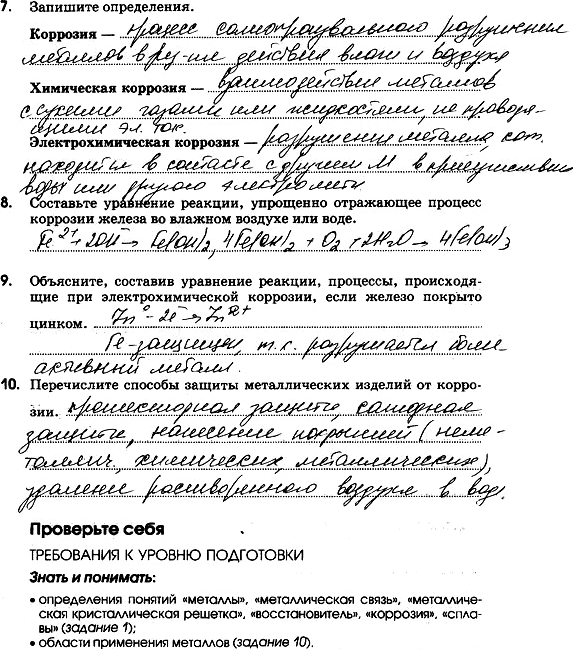 7. Запишите определения.
Коррозия — процесс самопроизвольного разрушения
металлов в рез-те действия влаги и воздуха
Химическая коррозия — взаимодействие металлов
с сухими газами или жидкостями, не проводя-
щими эл. ток.
Электрохимическая коррозия — разрушение металла, кот.
находится в контакте с другим М в присутствии
воды или другого электролита
8. Составьте уравнение реакции, упрощенно отражающее процесс
коррозии железа во влажном воздухе или воде.
Fe²⁺ + 2OH⁻ → Fe(OH)₂, 4Fe(OH)₂ + O₂ + 2H₂O → 4Fe(OH)₃
9. Объясните, составив уравнение реакции, процессы, происходя-
щие при электрохимической коррозии, если железо покрыто
цинком. Zn⁰ - 2ē → Zn²⁺
Fe - защищен, т.к. разрушается более
активный металл.
10. Перечислите способы защиты металлических изделий от корро-
зии. протекторная защита, катодная
защита, нанесение покрытий (неме-
таллич, химических, металлических),
удаление растворенного воздуха в вод.
Проверьте себя
ТРЕБОВАНИЯ К УРОВНЮ ПОДГОТОВКИ
Знать и понимать:
• определения понятий «металлы», «металлическая связь», «металличе-
ская кристаллическая решетка», «восстановитель», «коррозия», «спла-
вы» (задание 1);
• области применения металлов (задание 10).